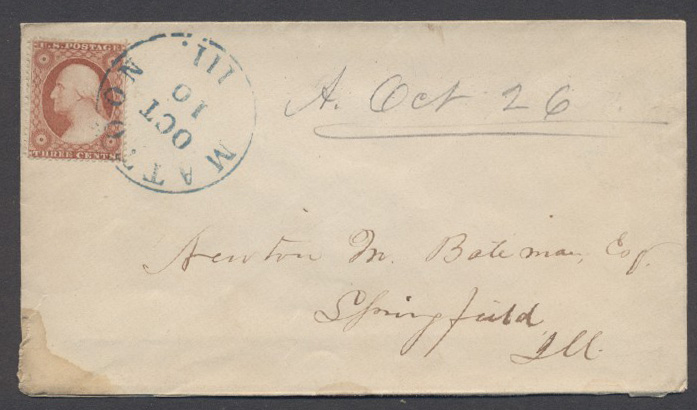 U.S. POSTAGE
THREE CENTS
MATTOON Ill.
OCT
10
A. Oct 26
Newton M. Bateman, Esq.
Springfield
Ill.